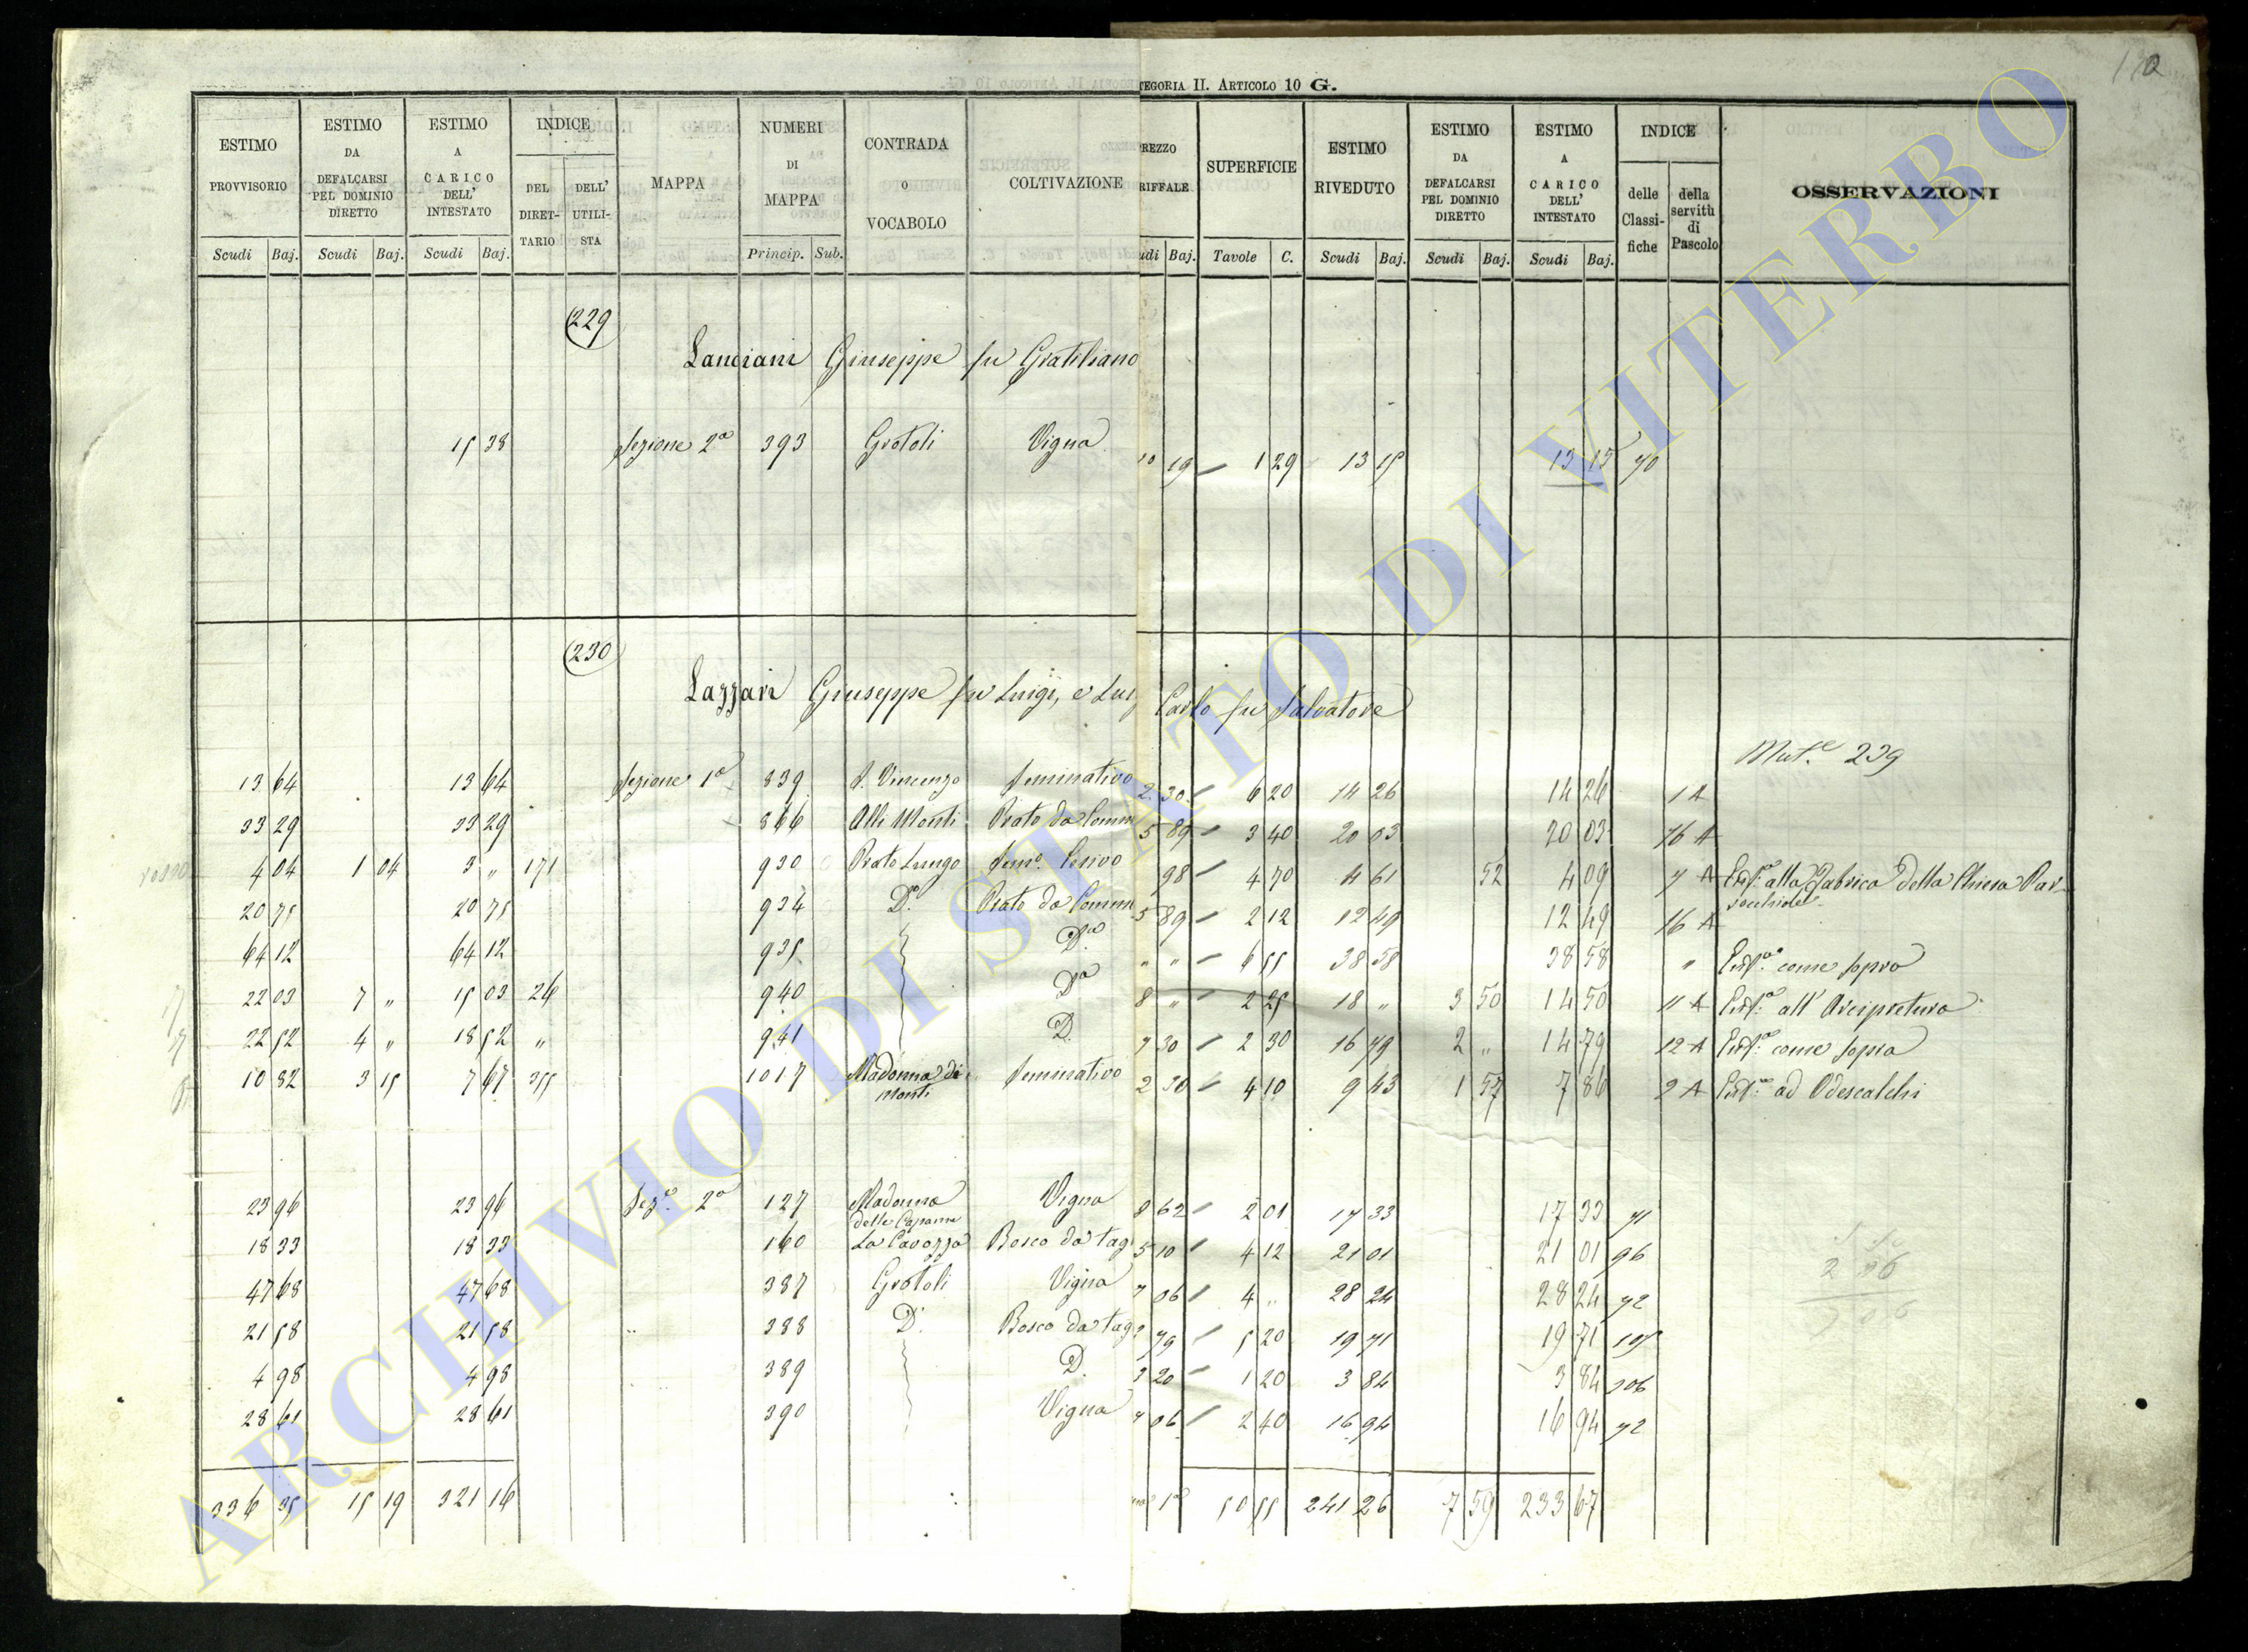 TEGORIA II. ARTICOLO 10 G.
110
ESTIMO PROVVISORIO Scudi Baj.
ESTIMO DA DEFALCARSI PEL DOMINIO DIRETTO Scudi Baj.
ESTIMO A CARICO DELL' INTESTATO Scudi Baj.
INDICE DEL DIRET- TARIO DELL' UTILI- STA
MAPPA
NUMERI DI MAPPA Princip. Sub.
CONTRADA O VOCABOLO
COLTIVAZIONE
REZZO RIFFALE udi Baj.
SUPERFICIE Tavole C.
ESTIMO RIVEDUTO Scudi Baj.
ESTIMO DA DEFALCARSI PEL DOMINIO DIRETTO Scudi Baj.
ESTIMO A CARICO DELL' INTESTATO Scudi Baj.
INDICE delle Classi- fiche della servitù di Pascolo
OSSERVAZIONI
229
Lanciani Giuseppe fu Gratiliano
15 38 Sezione 2a 393 Grotoli Vigna 10 19 1 29 13 15 13 15 70
230
Lazzari Giuseppe fu Luigi, e Lui Carlo fu Salvatore
Mut.e 239
13 64 13 64 Sezione 1a 839 S. Vincenzo Seminativo 2 30 6 20 14 26 14 26 1 A
33 29 33 29 866 Alli Monti Prato da Comm 5 89 3 40 20 03 20 03 16 A
4 04 1 04 3 „ 171 930 Prato Lungo Sem.o 98 4 70 4 61 52 4 09 7 A Enf.a alla Fabrica della Chiesa Par-
rocchiale
20 75 20 75 934 D.o Prato da Comm 5 89 2 12 12 49 12 49 16 A
64 12 64 12 935 D.o „ „ 6 55 38 58 38 58 „ Enf.a come sopra
22 03 7 „ 15 03 26 940 D.o 8 „ 2 25 18 „ 3 50 14 50 11 A Enf.a all' Arcipretura
22 52 4 „ 18 52 „ 941 D. 7 30 2 30 16 79 2 „ 14 79 12 A Enf.a come sopra
10 82 3 15 7 67 355 1017 Madonna di Monti Seminativo 2 30 4 10 9 43 1 57 7 86 2 A Enf.a ad Odescalchi
23 96 23 96 Sez.e 2a 127 Madonna delle Capanne Vigna 8 62 2 01 17 33 17 33 71
18 33 18 33 160 La Cavozza Bosco da tag 5 10 4 12 21 01 21 01 96
47 68 47 68 387 Grotoli Vigna 7 06 4 „ 28 24 28 24 72
21 58 21 58 388 D.o Bosco da tag 3 79 5 20 19 71 19 71 105
4 98 4 98 389 D. 3 20 1 20 3 84 3 84 106
28 61 28 61 390 Vigna 7 06 2 40 16 94 16 94 72
336 35 15 19 321 16 50 55 241 26 7 59 233 67
ARCHIVIO DI STATO DI VITERBO